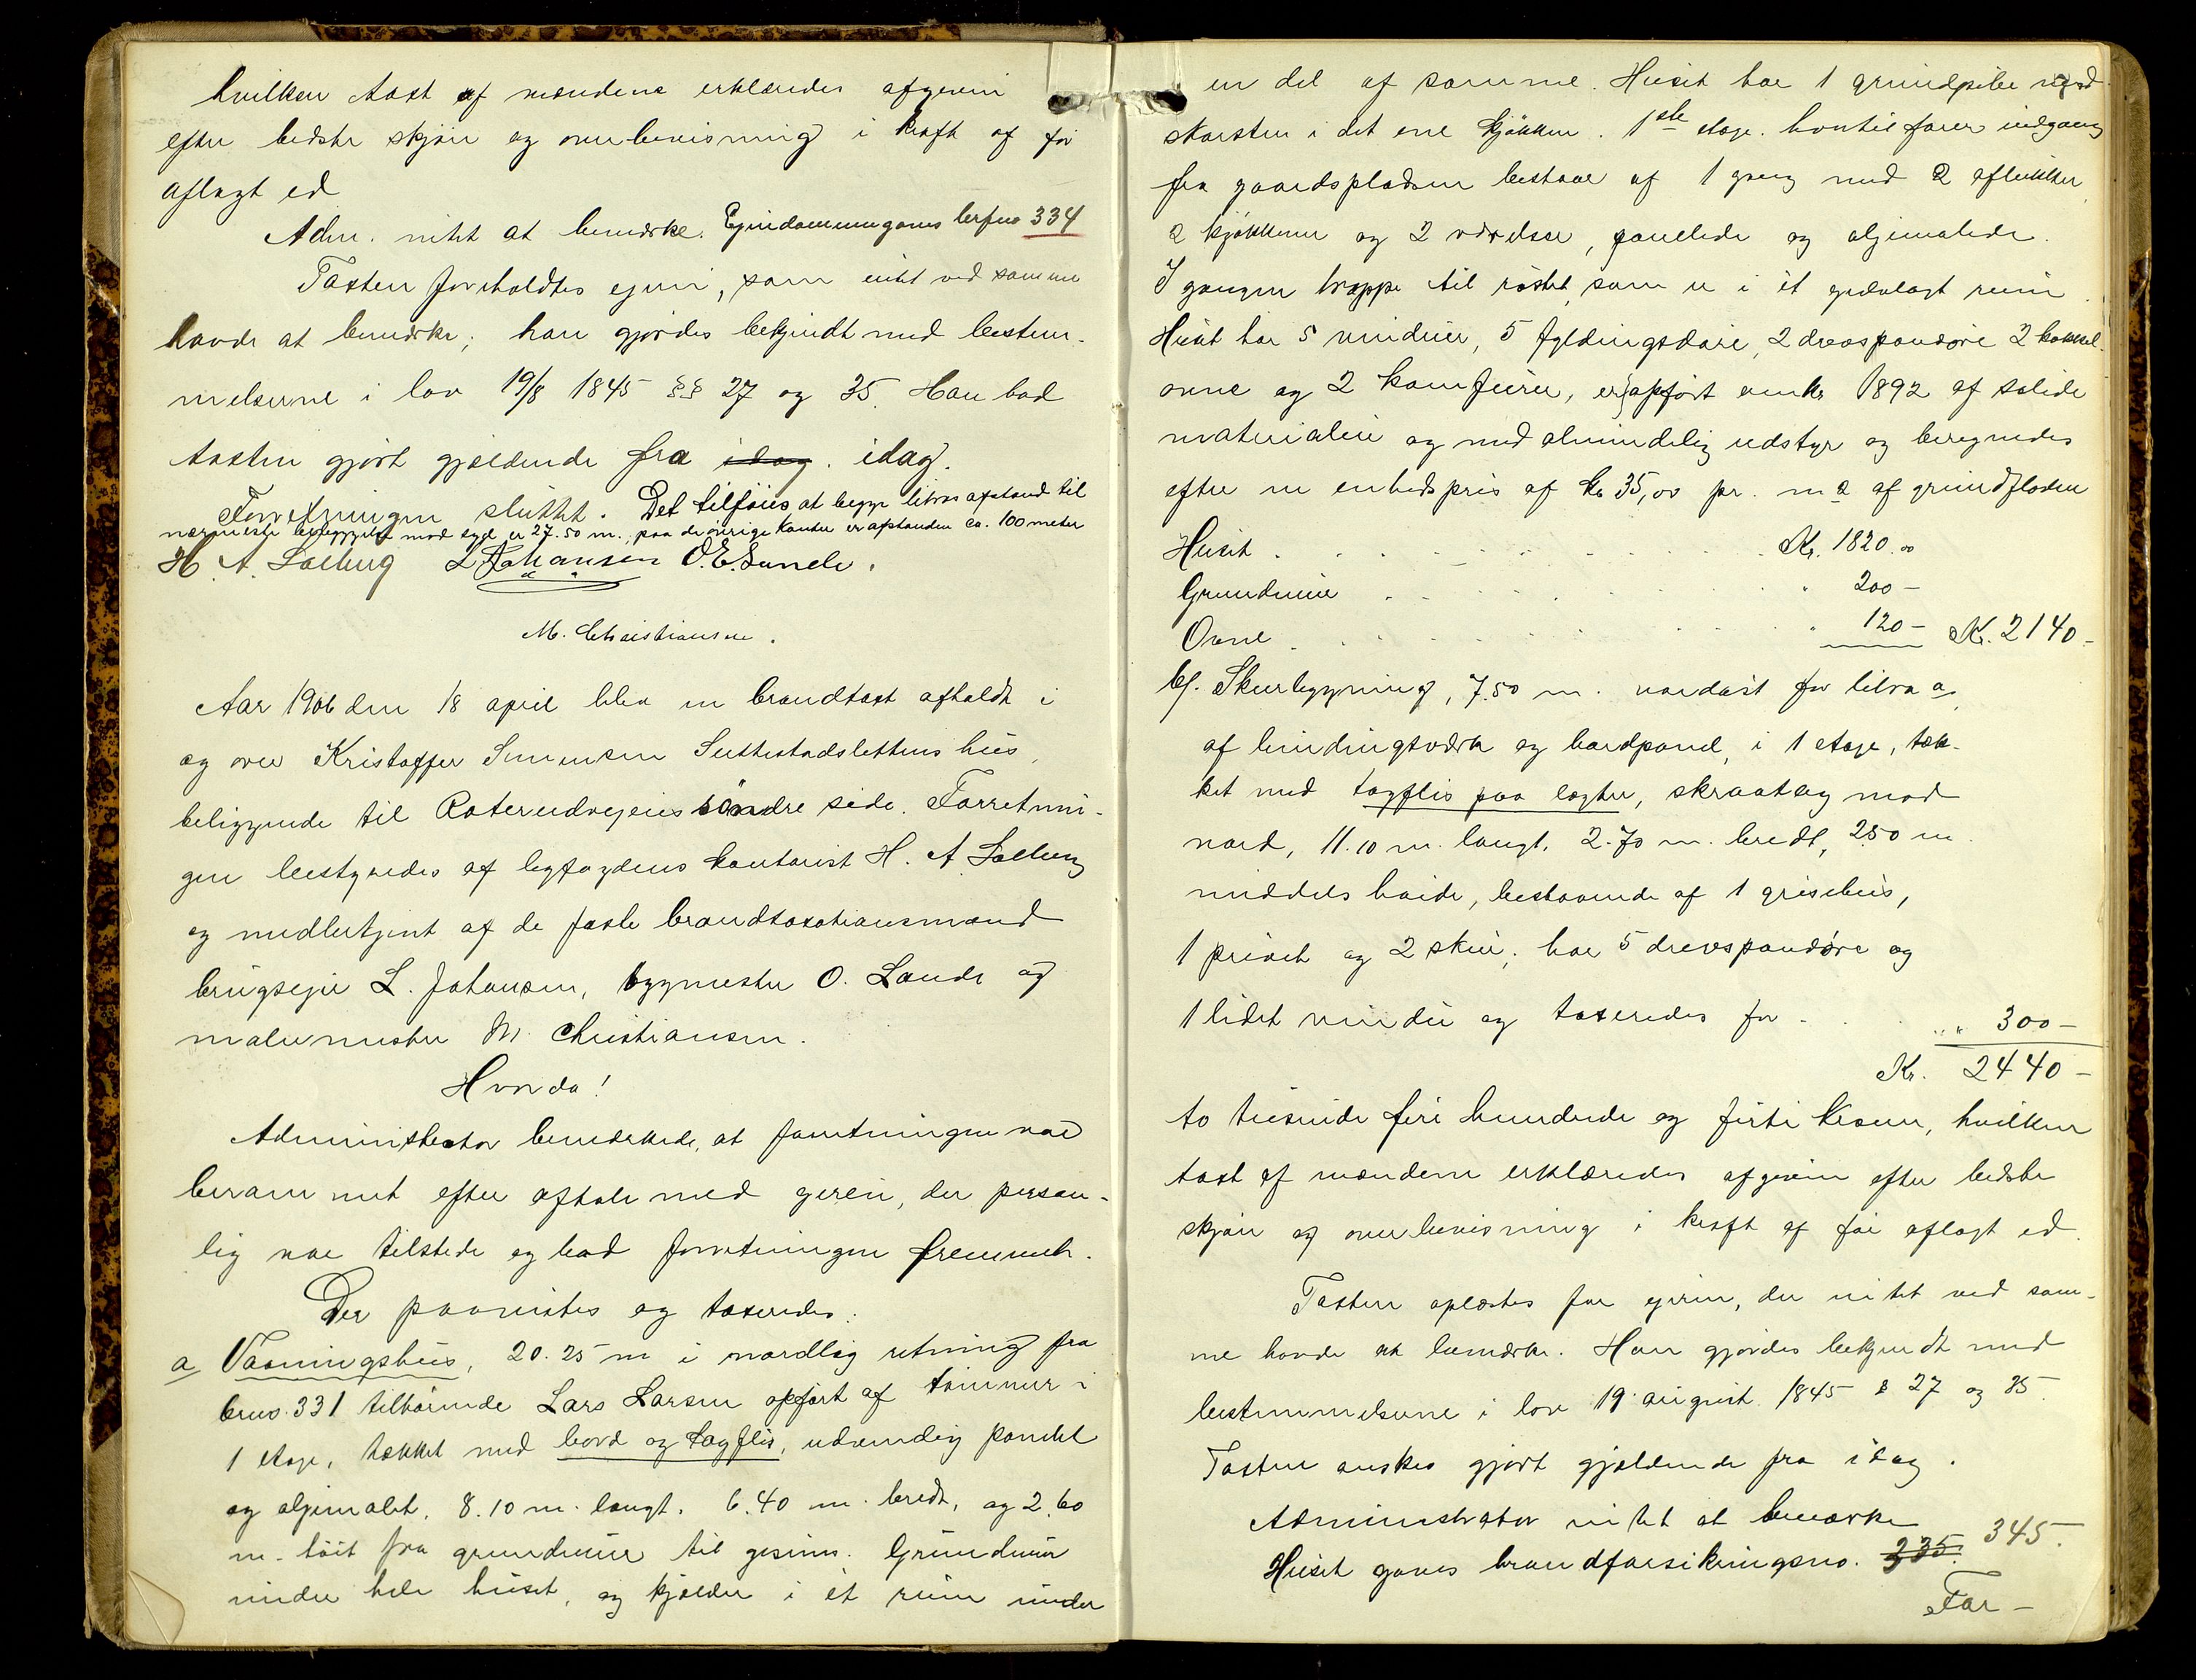 hvilken taxt af mændene erklæredes afgiven
efter bedste skjøn og overbevisning i kraft af før
aflagt ed
Adm. intet at bemærke. Eiendommen gaves brfno 334
Taxten foreholdtes eieren, som intet ved samme
havde at bemærke; han gjordes bekjendt med bestem-
melserne i lov 19/8 1845 §§ 27 og 35. Han bad
taxten gjort gjældende fra idag. idag.
Forretningen sluttet. Det tilføies at begge litras afstand til
nærmeste bebyggelse mod syd er 27.50 m., paa de øvrige kanter er afstanden ca. 100 meter
H. A. Solberg L Johansen O. E. Sunde.
M. Christiansen.
Aar 1906 den 18 april blev en brandtaxt afholdt i
og over Kristoffer Simensen Suttestadslettens hus,
beliggende til Roterudveiens søndre side. Forretnin-
gen bestyredes af lensfogdens kontorist H. A. Solberg
og medbetjent af de faste brandtaxationsmænd
brugseier L. Johansen, bygmester O. Sunde og
malermester M. Christiansen.
Hvorda!
Administrator bemærkede, at forretningen var
berammet efter aftale med eieren, der person-
lig var tilstede og bad forretningen fremmet.
Der paavistes og taxeredes:
a Vaaningshus, 20.25 m i nordlig retning fra
brno. 331 tilhørende Lars Larsen opført af tømmer i
1 etage, tækket med bord og tagflis, udvendig panelet
og oljemalet. 8.10 m. langt. 6.40 m. bredt, og 2.60
m. høit fra grundmur til gesims. Grundmur
under hele huset, og kjælder i et rum under
en del af samme. Huset har 1 grundpibe med
skorsten i det ene kjøkken. 1ste etage. hvortil fører indgang
fra gaardspladsen bestaar af 1 gang med 2 aflukker
2 kjøkkener og 2 værelser, panelede og oljemalede.
I gangen trappe til røstet, som er i et gulvlagt rum.
Huset har 5 vinduer, 5 fyldingsdøre, 2 drevspandøre 2 kakkel-
ovne og 2 komfurer, er opført omkr. 1892 af solide
materialier og med almindelig udstyr og beregnedes
efter en enhedspris af kr 35,00 pr. m2 af grundfladen
Huset . . . . . . Kr. 1820.00
Grundmur . . . . . . " 200 –
Ovne . . . . . . " 120 – Kr. 2140 –
b/. Skurbygning, 7.50 m. nordøst for litra a,
af bindingsværk og bordpanel, i 1 etage, tæk-
ket med tagflis paa lægter, skraatag mod
nord, 11.10 m. langt, 2.70 m. bredt, 2.50 m
middels høide, bestaaende af 1 grisehus,
1 privet og 2 skur; har 5 drevspandøre og
1 lidet vindu og taxeredes for . . " " 300 –
Kr. 2440 –
to tusinde fire hundrede og firti kroner, hvilken
taxt af mændene erklæredes afgiven efter bedste
skjøn og overbevisning i kraft af før aflagt ed.
Taxten oplæstes for eieren, der intet ved sam-
me havde at bemærke. Han gjordes bekjendt med
bestemmelserne i lov 19 august 1845 § 27 og 35.
Taxten ønskes gjort gjældende fra idag.
Administrator intet at bemærke
Huset gaves brandforsikringsno. 335. 345.
For –